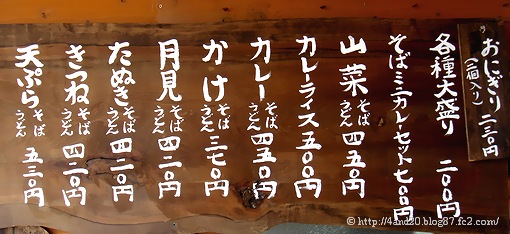 おにぎり(二個入り)二三〇円
各種大盛り 二〇〇円
そばミニカレーセット七〇〇円
山菜そばうどん四五〇円
カレーライス五〇〇円
カレーそばうどん四五〇円
かけそばうどん三七〇円
月見そばうどん四二〇円
たぬきそばうどん四二〇円
きつねそばうどん四二〇円
天ぷらそばうどん五三〇円
© http://4and20.blog87.fc2.com/